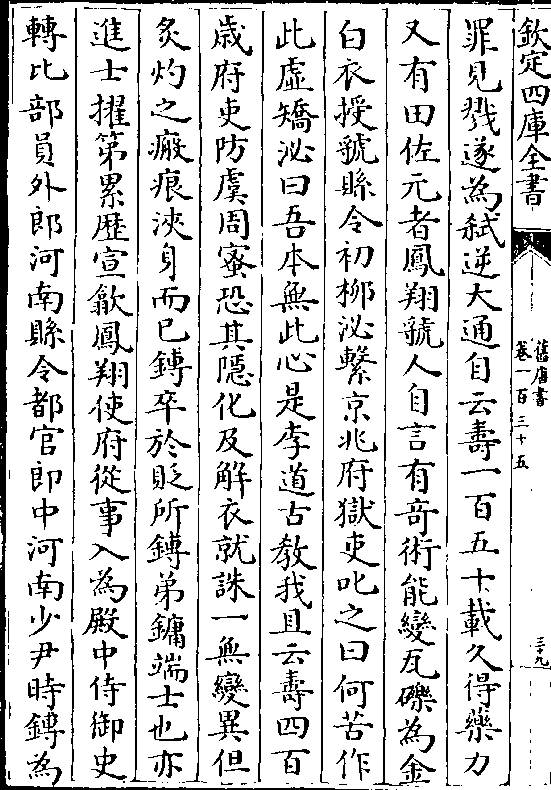 欽定四庫全書
舊唐書
卷一百三十五
三十九
罪見戮遂為弑逆大通自云壽一百五十載久得藥力
又有田佐元者鳳翔虢人自言有竒術能變瓦礫為金
白衣授虢縣令初栁泌繫京兆府獄吏叱之曰何苦作
此虛矯泌曰吾本無此心是李道古教我且云壽四百
歲府吏防虞周蜜恐其隱化及解衣就誅一無變異但
炙灼之瘢痕浹身而已鎛卒於貶所鎛弟鏞端士也亦
進士擢第累歴宣歙鳳翔使府從事入為殿中侍御史
轉比部員外郎河南縣令都官郎中河南少尹時鎛為